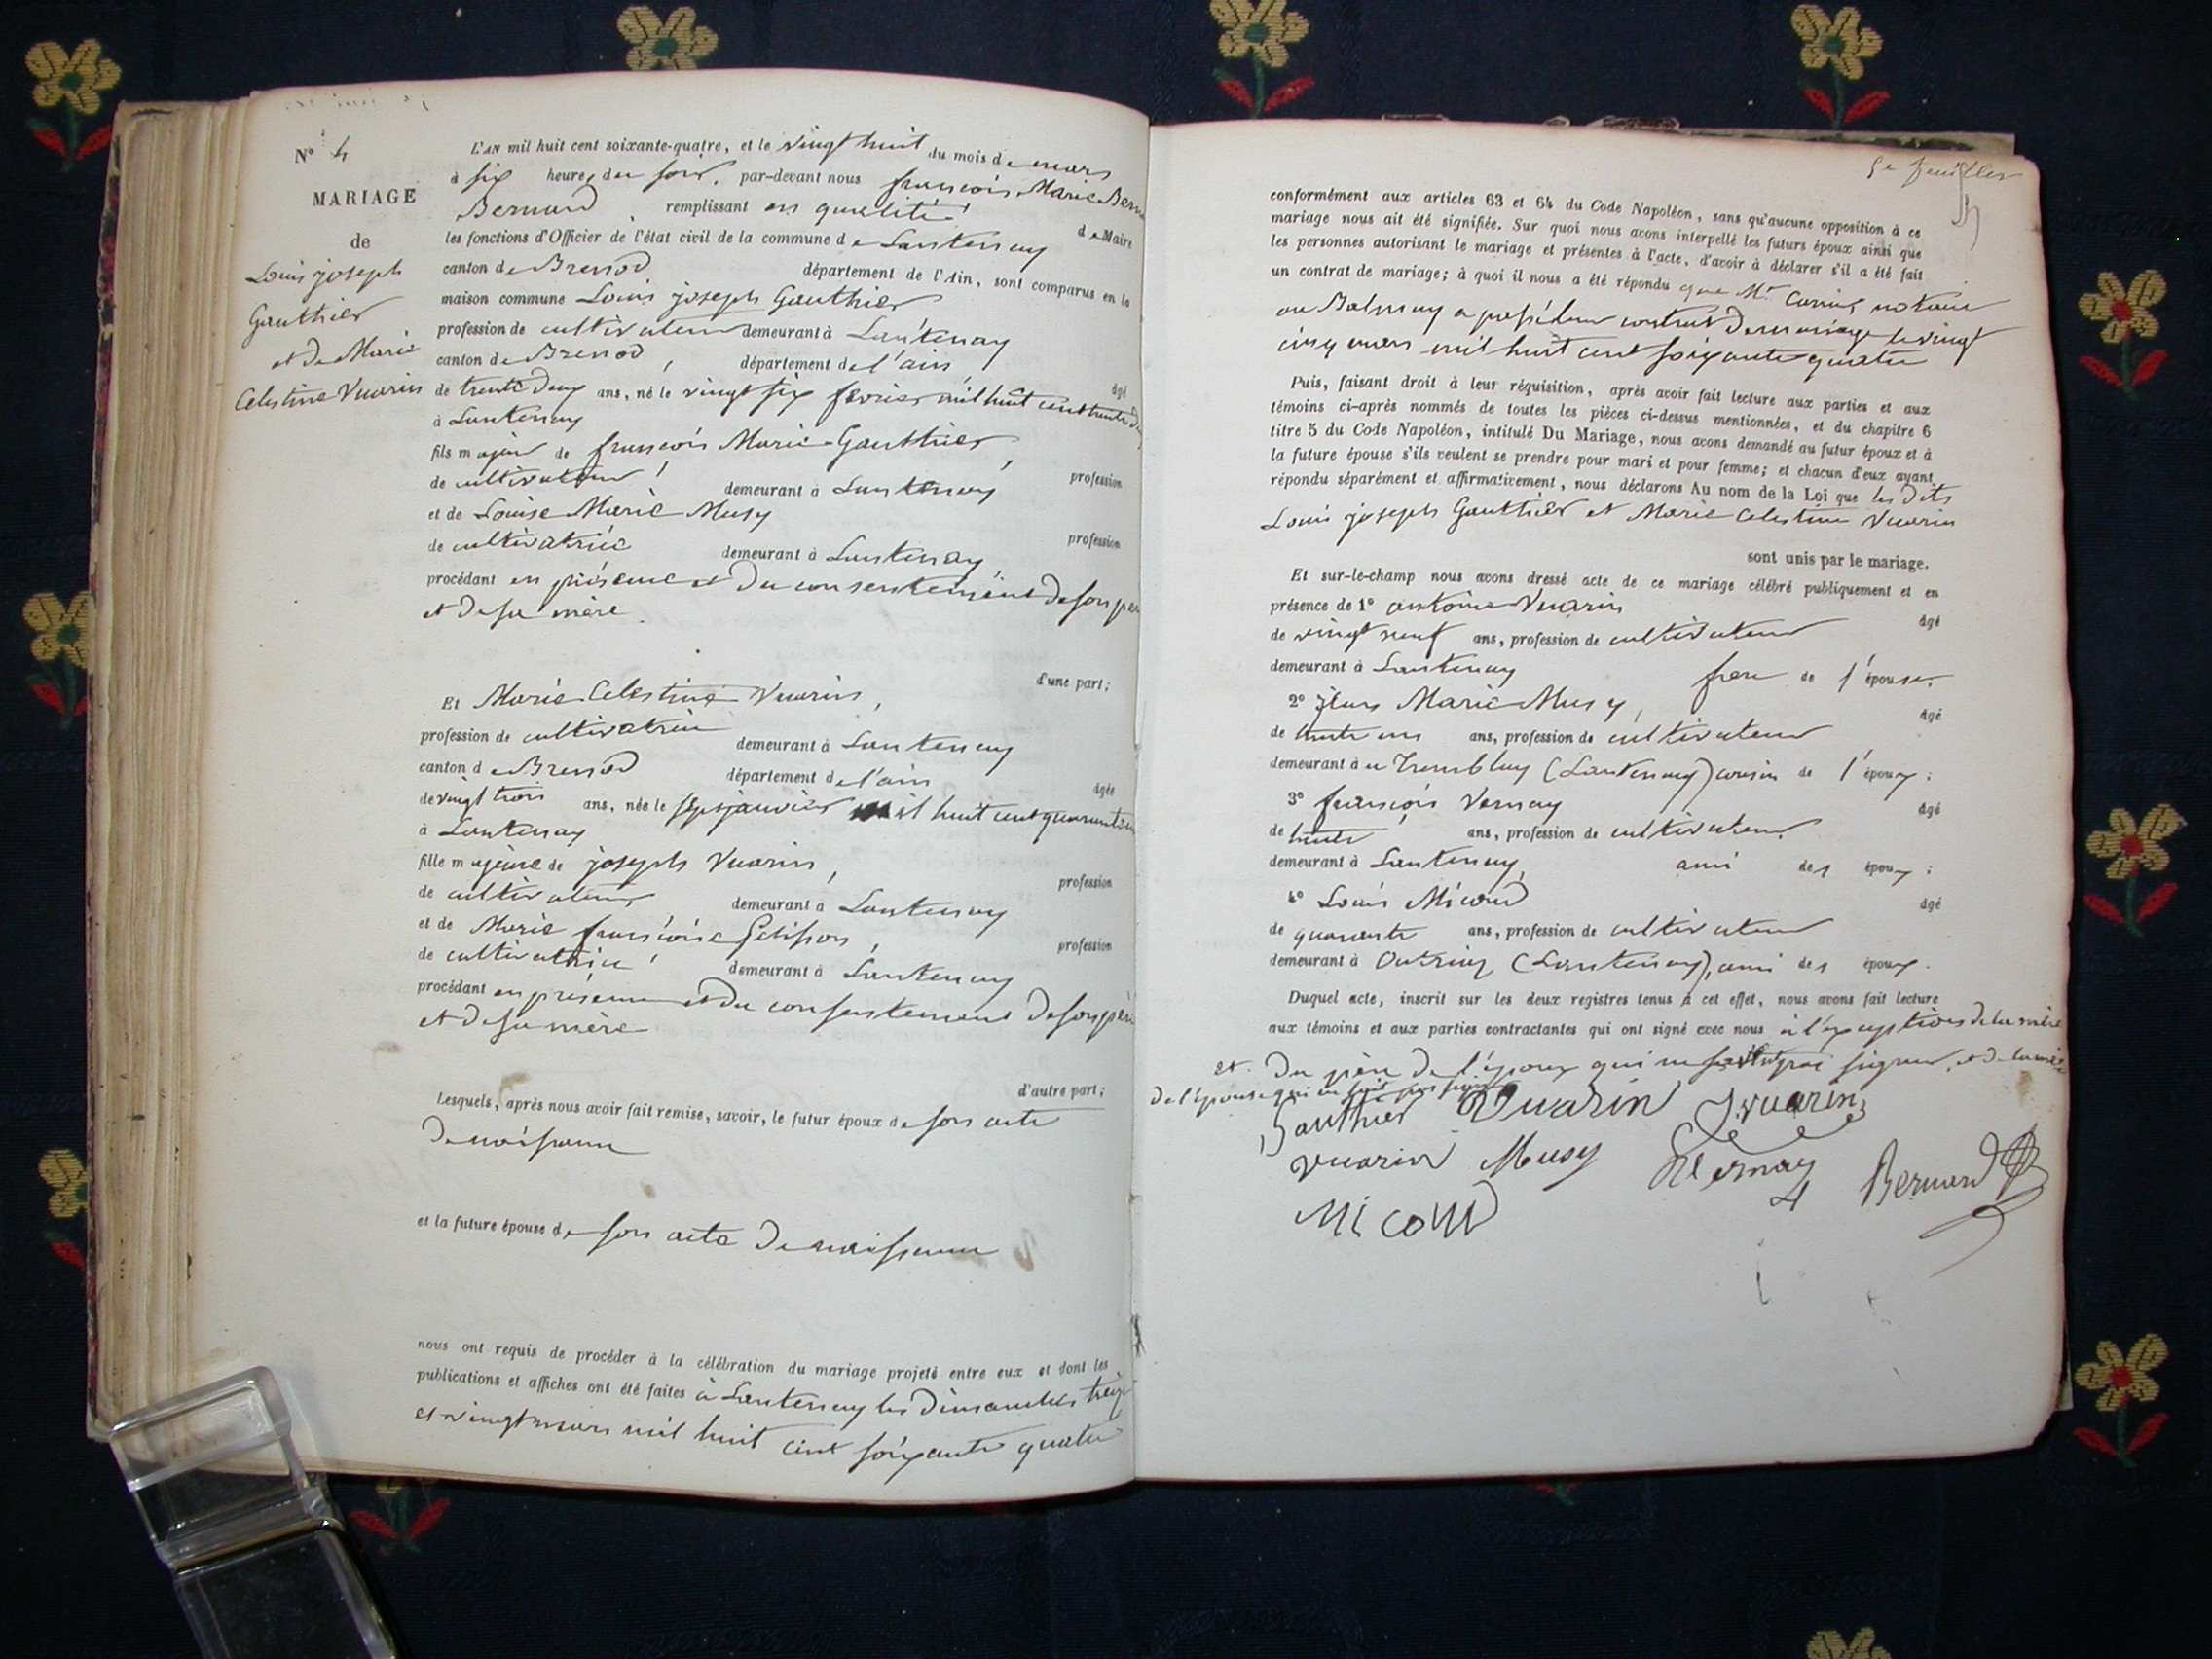 N° 4
MARIAGE
de
Louis joseph
Gauthier
et de Marie
Celestine Vuarin
L'AN mil huit cent soixante-quatre, et le vingt huit du mois de mars
à six heures du soir, par-devant nous françois Marie
Bernard remplissant en qualité de Maire
les fonctions d'Officier de l'état civil de la commune de Lantenay
canton de Brenod département de l'Ain, sont comparus en la
maison commune Louis joseph Gauthier
profession de cultivateur demeurant à Lantenay
canton de Brenod, département de l'ain, âgé
de trente deux ans, né le vingt six fevrier mil huit cent trente
à Lantenay
fils majeur de françois Marie Gauthier, profession
de cultivateur, demeurant à Lantenay
et de Louise Marie Musy profession
de cultivatrice demeurant à Lantenay,
procédant en présence et du consentement de son père
et de sa mère.
d'une part;
Et Marie Celestine Vuarin,
profession de cultivatrice demeurant à Lantenay
canton de Brenod département de l'ain âgée
de vingt trois ans, née le sept janvier mil huit cent quarante
à Lantenay
fille majeure de joseph Vuarin, profession
de cultivateur demeurant à Lantenay
et de Marie françoise, profession
de cultivatrice demeurant à Lantenay
procédant en présence et du consentement de son père
et de sa mère
d'autre part;
Lesquels, après nous avoir fait remise, savoir, le futur époux de son acte
de naissance
et la future épouse de son acte de naissance
nous ont requis de procéder à la célébration du mariage projeté entre eux et dont les
publications et affiches ont été faites à Lantenay les dimanches treize
et vingt mars mil huit cent soixante quatre
5e feuillet
conformément aux articles 63 et 64 du Code Napoléon, sans qu'aucune opposition à ce
mariage nous ait été signifiée. Sur quoi nous avons interpellé les futurs époux ainsi que
les personnes autorisant le mariage et présentes à l'acte, d'avoir à déclarer s'il a été fait
un contrat de mariage; à quoi il nous a été répondu que Mr notaire
au Balmay a passé leur contrat de mariage le vingt
cinq mars mil huit cent soixante quatre
Puis, faisant droit à leur réquisition, après avoir fait lecture aux parties et aux
témoins ci-après nommés de toutes les pièces ci-dessus mentionnées, et du chapitre 6
titre 5 du Code Napoléon, intitulé Du Mariage, nous avons demandé au futur époux et à
la future épouse s'ils veulent se prendre pour mari et pour femme; et chacun d'eux ayant
répondu séparément et affirmativement, nous déclarons Au nom de la Loi que les dits
Louis joseph Gauthier et Marie Celestine Vuarin
sont unis par le mariage.
Et sur-le-champ nous avons dressé acte de ce mariage célébré publiquement et en
présence de 1° antoine Vuarin âgé
de vingt neuf ans, profession de cultivateur
demeurant à Lantenay frere de l'épouse.
2° jean Marie Musy, âgé
de trente un ans, profession de cultivateur
demeurant à u Tremblay (Lantenay) cousin de l'époux;
3° françois Vernay âgé
de trente ans, profession de cultivateur
demeurant à Lantenay, ami des époux;
4° Louis Micoud âgé
de quarante ans, profession de cultivateur
demeurant à Outriaz (Lantenay), ami des époux.
Duquel acte, inscrit sur les deux registres tenus à cet effet, nous avons fait lecture
aux témoins et aux parties contractantes qui ont signé avec nous à l'exception de la mère
et du père de l'époux qui ne savent pas signer, et de la mère
de l'épouse qui ne sait pas signer
Gauthier Vuarin J. vuarin
vuarin Musy Vernay Bernard
Micoud